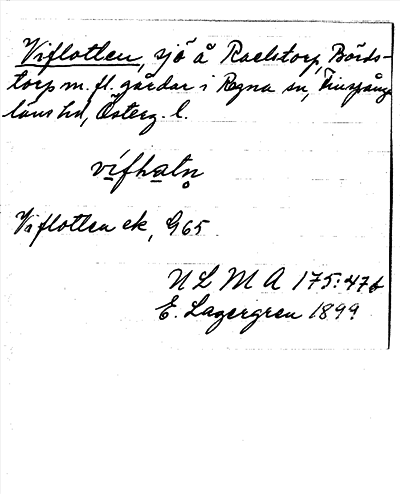 Viflotten, sjö å Raelstorp, Börds-
torp m. fl. gårdar i Regna sn, Finspånga
läns hd, Österg. l.
Viflotten ek, G65
ULMA 175:476
E. Lagergren 1899